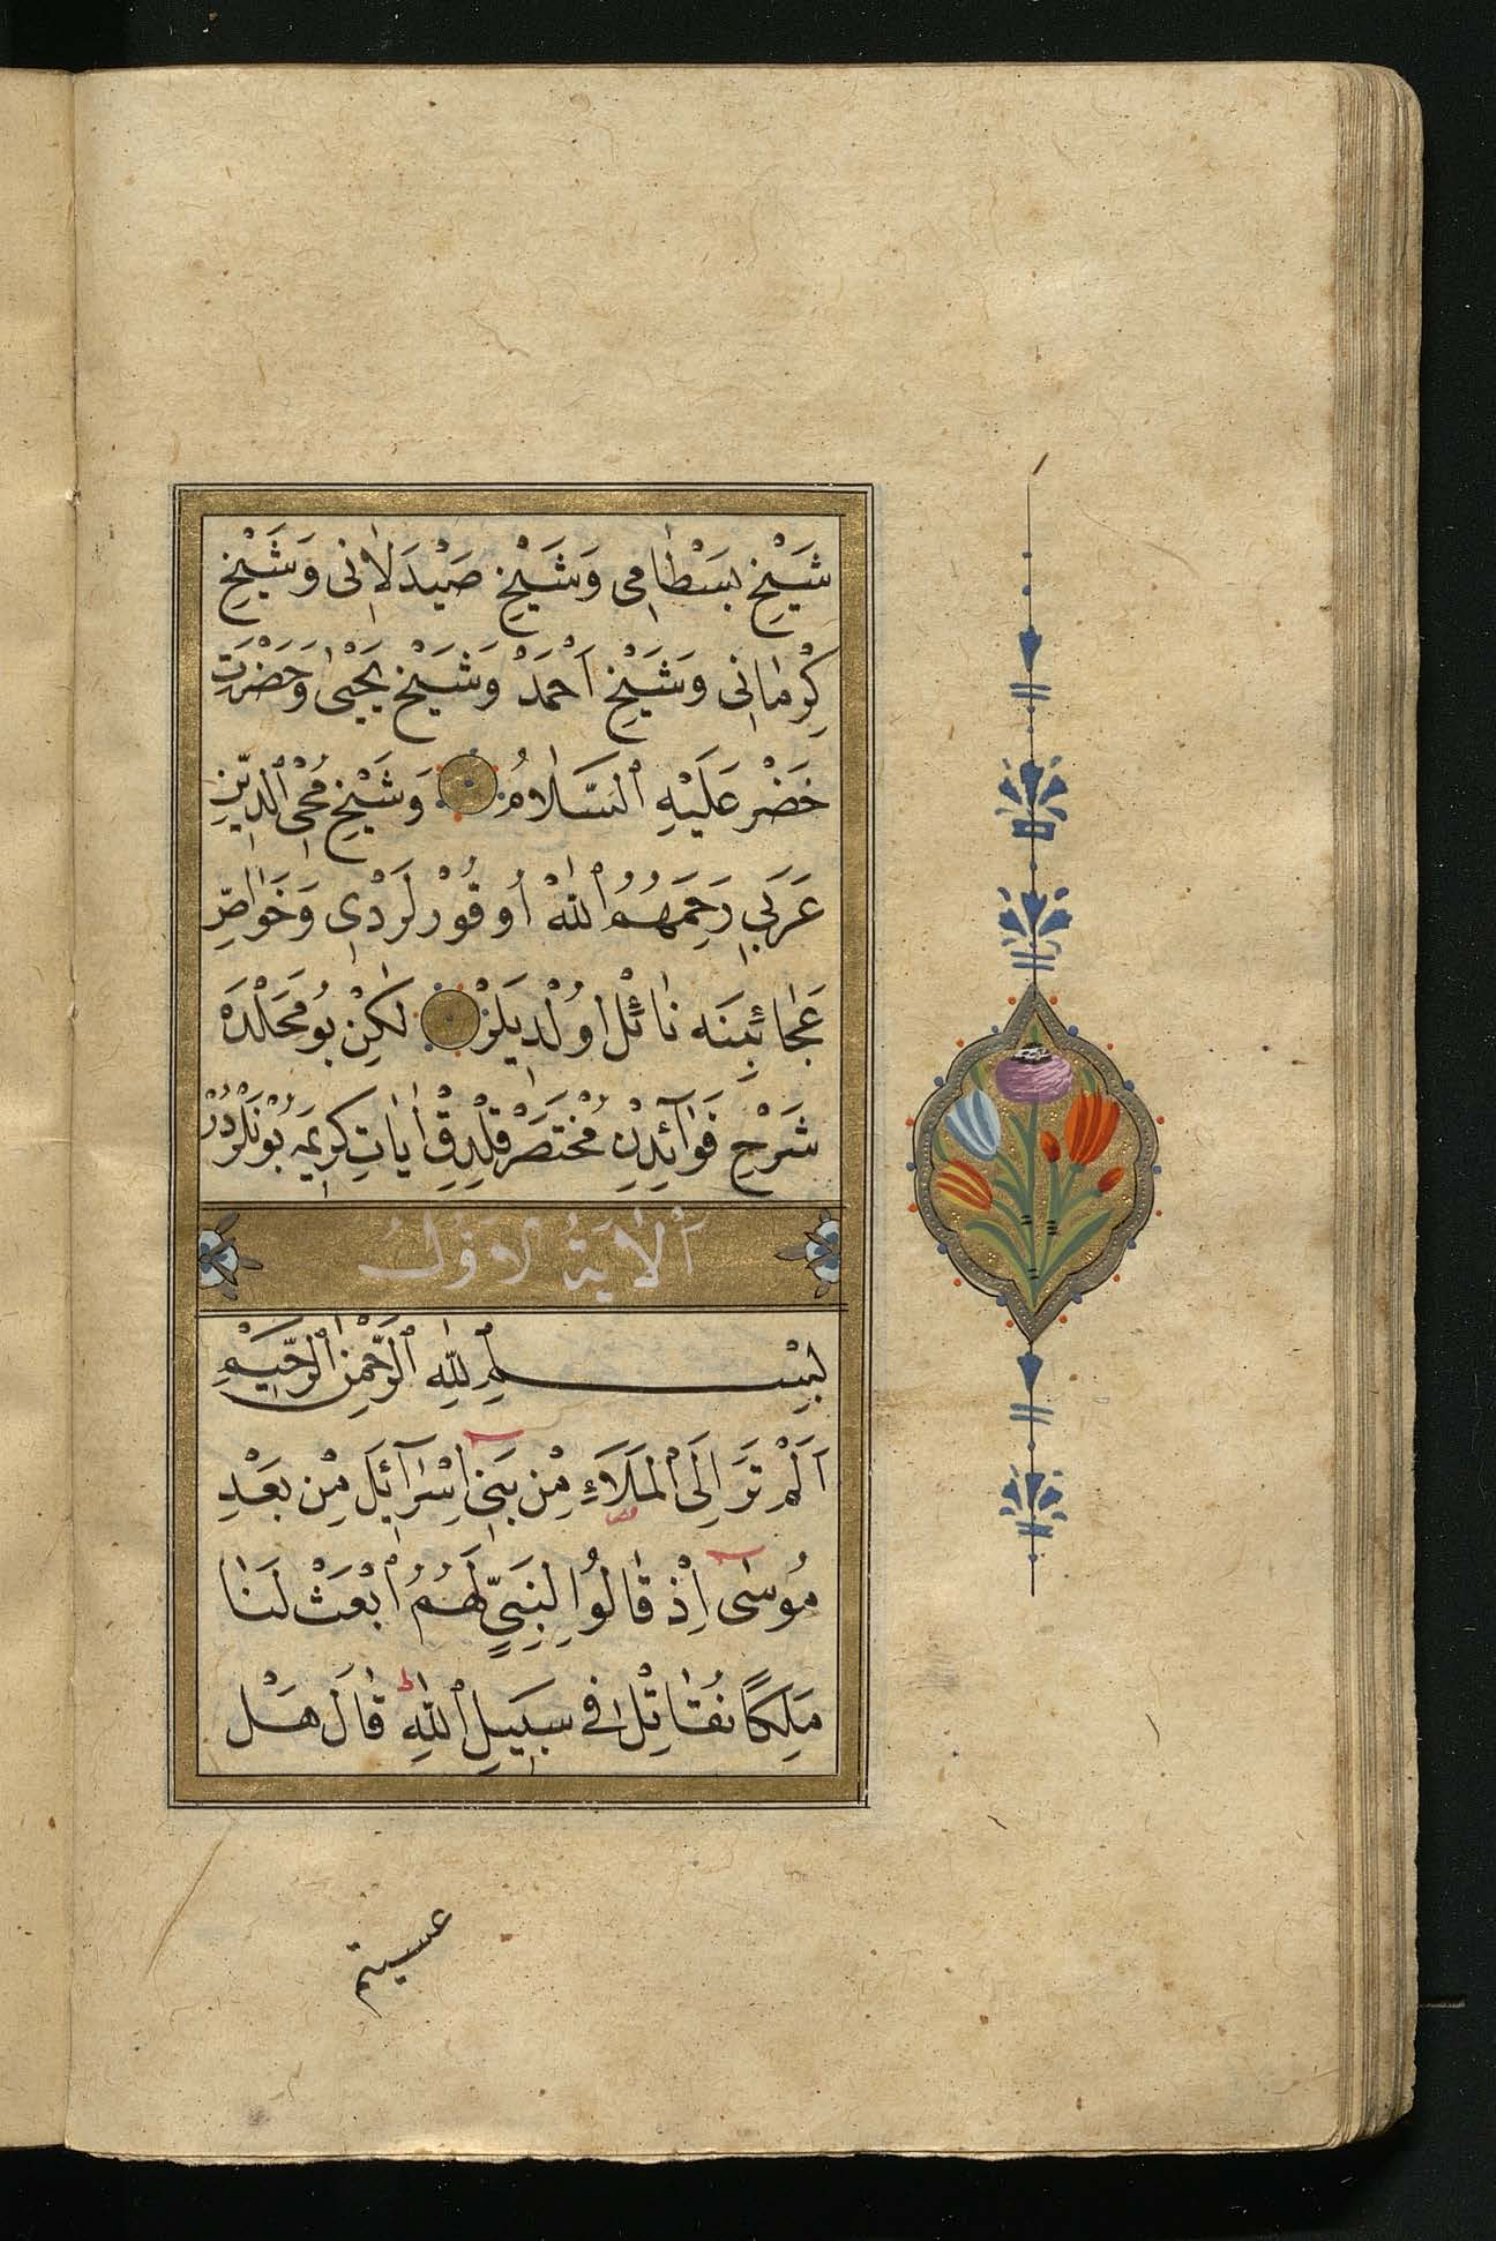 شَيْخِ بَسْطَامِى وَشَيْخِ صَيْدَلَانِى وَشَيْخِ
كِرْمَانِى وَشَيْخِ اَحْمَدْ وَشَيْخِ يَحْيٰى وَحَضْرَتِ
خَضْر عَلَيْهِ ٱلسَّلَامُ وَشَيْخِ مُحْيِى ٱلدِّينِ
عَرَبِى رَحِمَهُمُ ٱللّٰهْ اُوقُورْلَرْدِى وَخَوَاصِّ
عَجَائِبِنَه نَائِلْ اُولْدِيلَرْ لٰكِنْ بُو مَحَلْدَه
شَرْحِ فَوَآئِدِنْ مُخْتَصَرْ قِلْدِقْ اٰيَاتِ كَرِيمَه بُونْلَرْدُرْ
اَلْاٰيَةُ الْاَوَّلُ
بِسْمِ ٱللّٰهِ ٱلرَّحْمٰنِ ٱلرَّحِيمِ
اَلَمْ تَرَ اِلَى ٱلْمَلَاءِ مِنْ بَنِى اِسْرَآئِلَ مِنْ بَعْدِ
مُوسٰى اِذْ قَالُوا لِنَبِىٍّ لَهُمُ ٱبْعَثْ لَنَا
مَلِكًا نُقَاتِلْ فِى سَبِيلِ ٱللّٰهِ قَالَ هَلْ
عسيتم